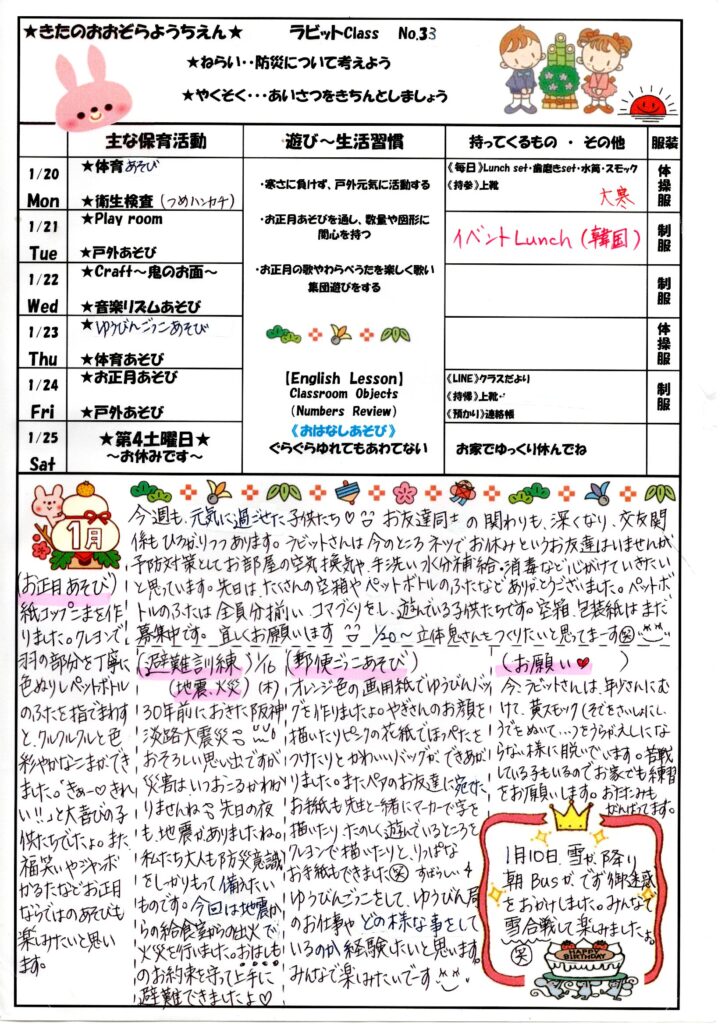 ★きたのおおぞらようちえん★ ラビットClass No.33
★ねらい‥防災について考えよう
★やくそく・・・あいさつをきちんとしましょう
主な保育活動 遊び～生活習慣 持ってくるもの ・ その他 服装
1/20 Mon
★体育あそび
★衛生検査 (つめハンカチ)
・寒さに負けず、戸外元気に活動する
《毎日》Lunch set・歯磨きset・水筒・スモック
《持参》上靴
大寒
体操服
1/21 Tue
★Play room
★戸外あそび
・お正月あそびを通し、数量や図形に
関心を持つ
イベントLunch (韓国)
制服
1/22 Wed
★Craft～鬼のお面～
★音楽リズムあそび
・お正月の歌やわらべうたを楽しく歌い
集団遊びをする
制服
1/23 Thu
★ゆうびんごっこあそび
★体育あそび
体操服
1/24 Fri
★お正月あそび
★戸外あそび
【English Lesson】
Classroom Objects
(Numbers Review)
《LINE》クラスだより
《持帰》上靴
《預かり》連絡帳
制服
1/25 Sat
★第4土曜日★
～お休みです～
《おはなしあそび》
ぐらぐらゆれてもあわてない
お家でゆっくり休んでね
1月
今週も、元気に過ごせた子供たち♡ お友達同士の関わりも、深くなり、交友関
係もひろがりつつあります。ラビットさんは今のところネツでお休みというお友達はいませんが
予防対策としてお部屋の空気換気や、手洗い水分補給・消毒など心がけていきたい
と思っています。先日は、たくさんの空箱やペットボトルのふたなどありがとうございました。ペットボ
トルのふたは全員分揃い、コマづくりをし、遊んでいる子供たちです。空箱、包装紙はまだ
募集中です。宜しくお願います 1/20～立体鬼さんをつくりたいと思ってまーす(笑)
(お正月あそび)
紙コップこまを作り
ました。クレヨンで
羽の部分を丁寧に
色ぬりしペットボトル
のふたを指でまわす
と、クルクルクルと色
彩やかなこまができ
ました。「きぁー♡きれ
い!!」と大喜びの子
供たちでしたよ。また、
福笑いやジャンボ
かるたなどお正月
ならではのあそびも
楽しみたいと思い
ます。
(避難訓練) 1/16
(地震、火災) (木)
30年前におきた阪神
淡路大震災
おそろしい思い出ですが
災害はいつおこるかわか
りませんね 先日の夜
も、地震がありましたね。
私たち大人も防災意識
をしっかりもって備えたい
ものです。今回は地震か
らの給食室からの出火で
火災を行いました。おはしも
のお約束を守って上手に
避難できましたよ♡
(郵便ごっこあそび)
オレンジ色の画用紙でゆうびんバッ
グを作りましたよ。やぎさんのお顔を
描いたりピンクの花紙でほっぺたを
つけたりとかわいいバッグが、できあが
りました。またペアのお友達に宛せた
お紙も先生と一緒にマーカーで字を
描いたり、たのしく遊んでいるところを
クレヨンで描いたりと、りっぱな
お手紙もできました(笑) すばらしい
ゆうびんごっこをして、ゆうびん局
のお仕事や、どの様な事をして
いるのか経験したいと思います。
みんなで楽しみたいです
(お願い♥)
今、ラビットさんは、年少さんにむ
けて、黄スモック(そでをさいしょにし
うでをぬいて…)をうらがえしになら
ない様に脱いでいます。苦戦
している子もいるのでお家でも練習
をお願いします。おたたみも
がんばってます。
1月10日、雪が、降り
朝Busが、でず御迷惑
をおかけしました。みんなで
雪合戦して楽しみましたよ。
(笑)
HAPPY BIRTHDAY